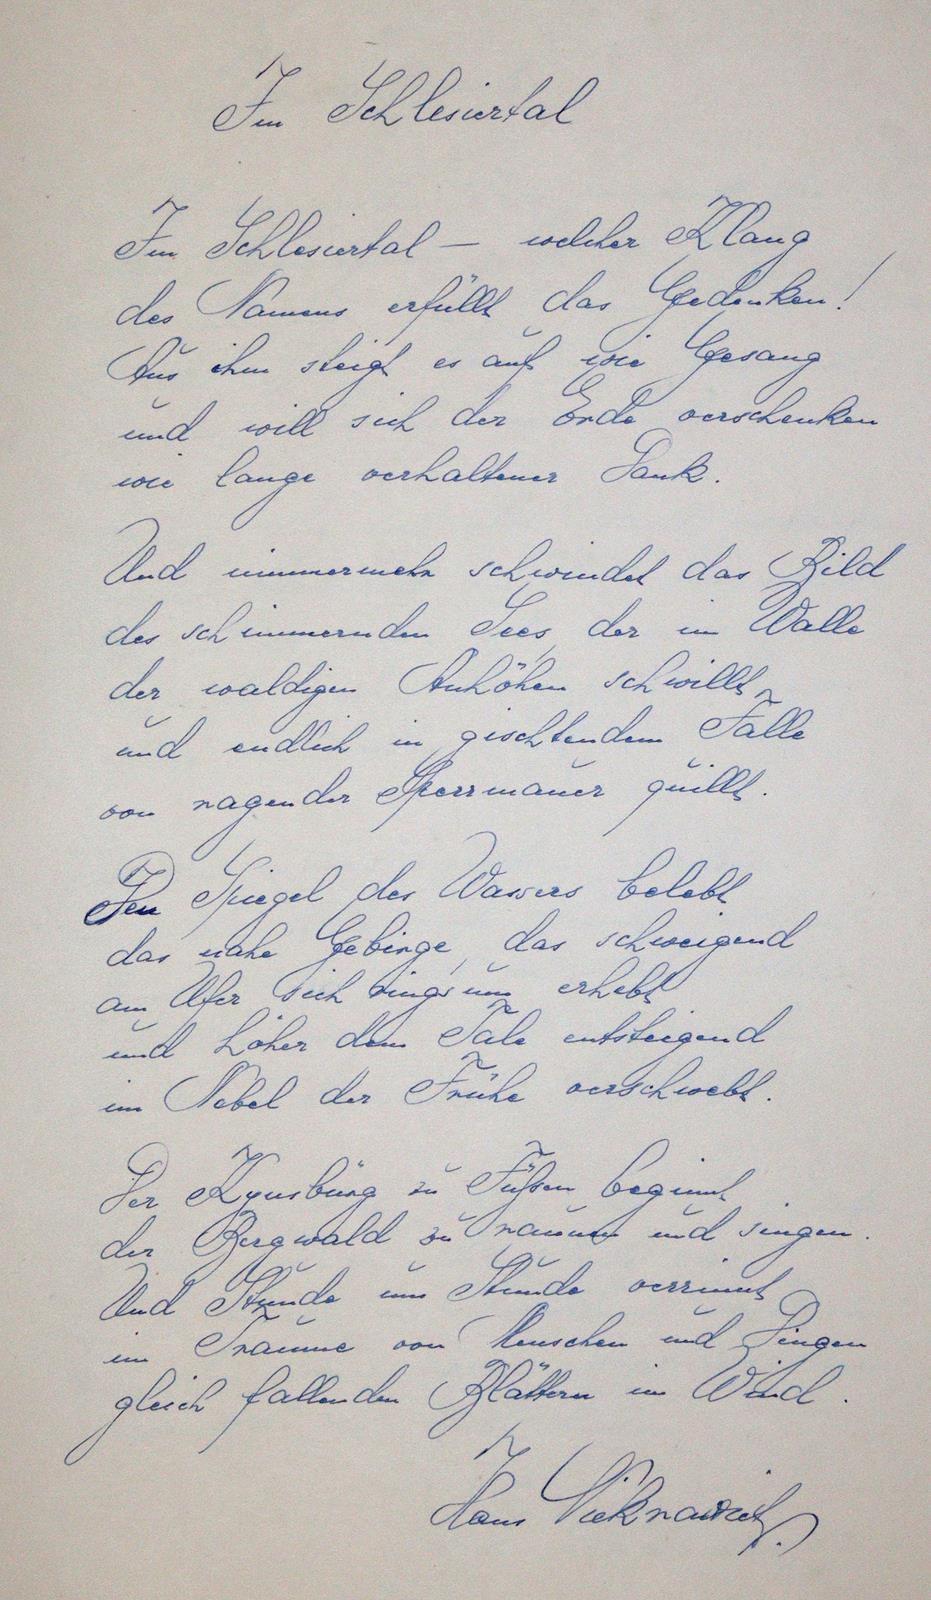 Im Schlesiertal
Im Schlesiertal – welcher Klang
des Namens erfüllt das Gedenken!
Aus ihm steigt es auf wie Gesang
und will sich der Erde verschenken
wie lange verhaltener Dank.
Und immermehr schwindet das Bild
des schimmernden Sees, der im Walle
der waldigen Anhöhen schwillt,
und endlich in gischtendem Falle
von ragender Sperrmauer quillt.
Den Spiegel des Wassers belebt
das nahe Gebirge, das schweigend
am Ufer sich rings um erhebt
und höher dem Tale entsteigend
im Nebel der Frühe verschwebt.
Der Kynsburg zu Füßen beginnt
der Bergwald zu raunen und singen.
Und Stunde um Stunde verrinnt
im Traume von Menschen und Dingen
gleich fallenden Blättern im Wind.
Hans